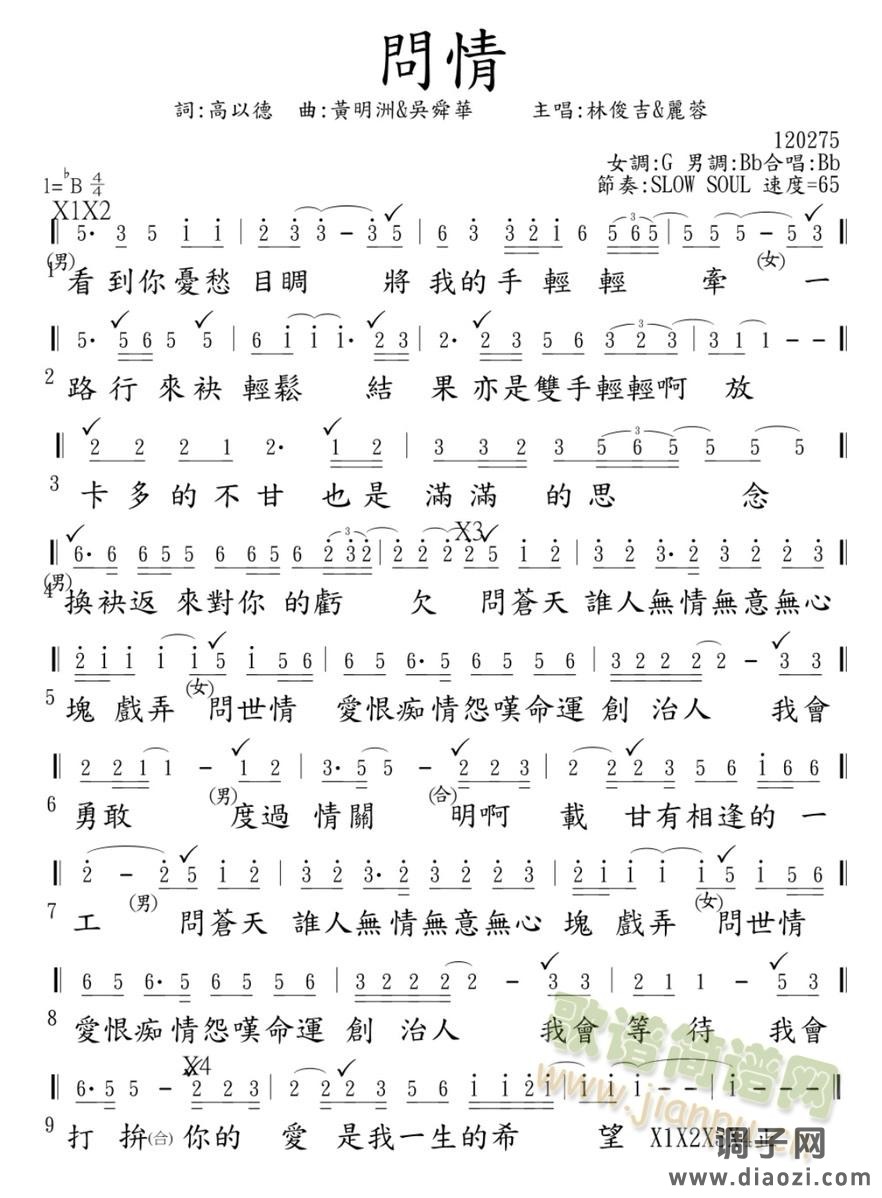 問情
詞:高以德 曲:黃明洲&吳舜華 主唱:林俊吉&麗蓉
120275
女調:G 男調:Bb合唱:Bb
1=♭B 4/4 節奏:SLOW SOUL 速度=65
X1X2
5· 3 5 i i | 2 3 3 - 3 5 | 6 3 3 2 i 6 5 6 5 | 5 5 - 5 3
(男) (女)
1 看到你憂愁 目睭 將我的手輕輕 牽 一
5· 5 6 5 5 | 6 i i i· 2 3 | 2· 2 3 5 6 3 2 3 | 3 1 1 - -
2 路行 來袂 輕鬆 結 果亦是雙手輕輕啊 放
2 2 2 1 2· 1 2 | 3 3 2 3 5 6 5 5 5 5
3 卡多的不甘 也是 滿滿 的思 念
X3
6· 6 6 5 5 6 6 5 6 2 3 2 | 2 2 2 2 5 i 2 | 3 2 3· 2 3 2 2 3
(男)
4 換袂返 來對你 的虧 欠 問蒼天 誰人無情無意無心
2 i i i i 5 i 5 6 | 6 5 6· 5 6 5 5 6 | 3 2 2 2 2 - 3 3
(女)
5 塊 戲弄 問世情 愛恨痴情怨嘆命運 創 治人 我會
2 2 1 1 - 1 2 | 3· 5 5 - 2 2 3 | 2 2 2 3 5 6 i 6
(男) (合)
6 勇敢 度過 情關 明啊 載 甘有相逢的 一
2 - 2 5 i 2 | 3 2 3· 2 3 2 2 3 | 2 i i i i 5 i 5 6
(男) (女)
7 工 問蒼天 誰人無情無意無心 塊 戲弄 問世情
6 5 6· 5 6 5 5 6 | 3 2 2 2 2 - 3 3 | 2 1 1 - 5 3
8 愛恨痴情怨嘆命運 創 治人 我會 等 待 我會
X4
6· 5 5 - 2 2 3 | 2 2 3 5 6 i i 2 i | i - - - | i - - -
9 打拚(合)你的 愛 是我一生的希 望 X1X2X3X4止
歌谱简谱网
调子网
www.diaozi.com